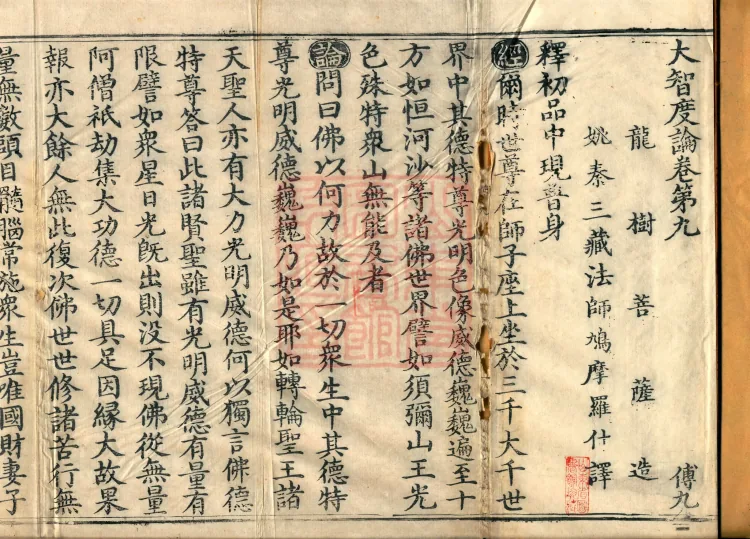 大智度論卷第九 傅九
龍樹菩薩造
姚秦三藏法師鳩摩羅什譯
釋初品中現普身
經爾時世尊在師子座上坐於三千大千世
界中其德特尊光明色像威德巍巍遍至十
方如恒河沙等諸佛世界譬如須彌山王光
色殊特衆山無能及者
論問曰佛以何力故於一切衆生中其德特
尊光明威德巍巍乃如是耶如轉輪聖王諸
天聖人亦有大力光明威德何以獨言佛德
特尊答曰此諸賢聖雖有光明威德有量有
限譬如衆星日光旣出則没不現佛從無量
阿僧祇劫集大功德一切具足因緣大故果
報亦大餘人無此復次佛世世修諸苦行無
量無數頭目髓腦常施衆生豈唯國財妻子